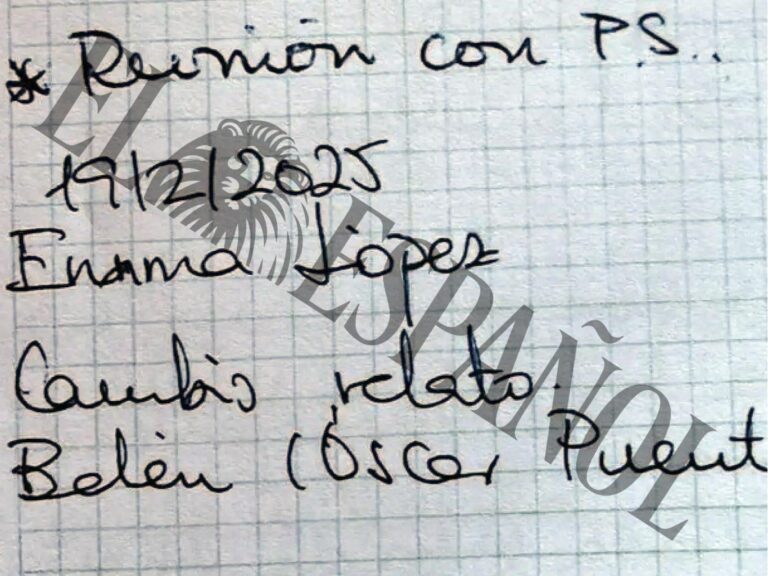 * Reunión con P.S..
19/2/2025
Emma López
Cambio relato.
Belén (Óscar Puent
EL ESPAÑOL